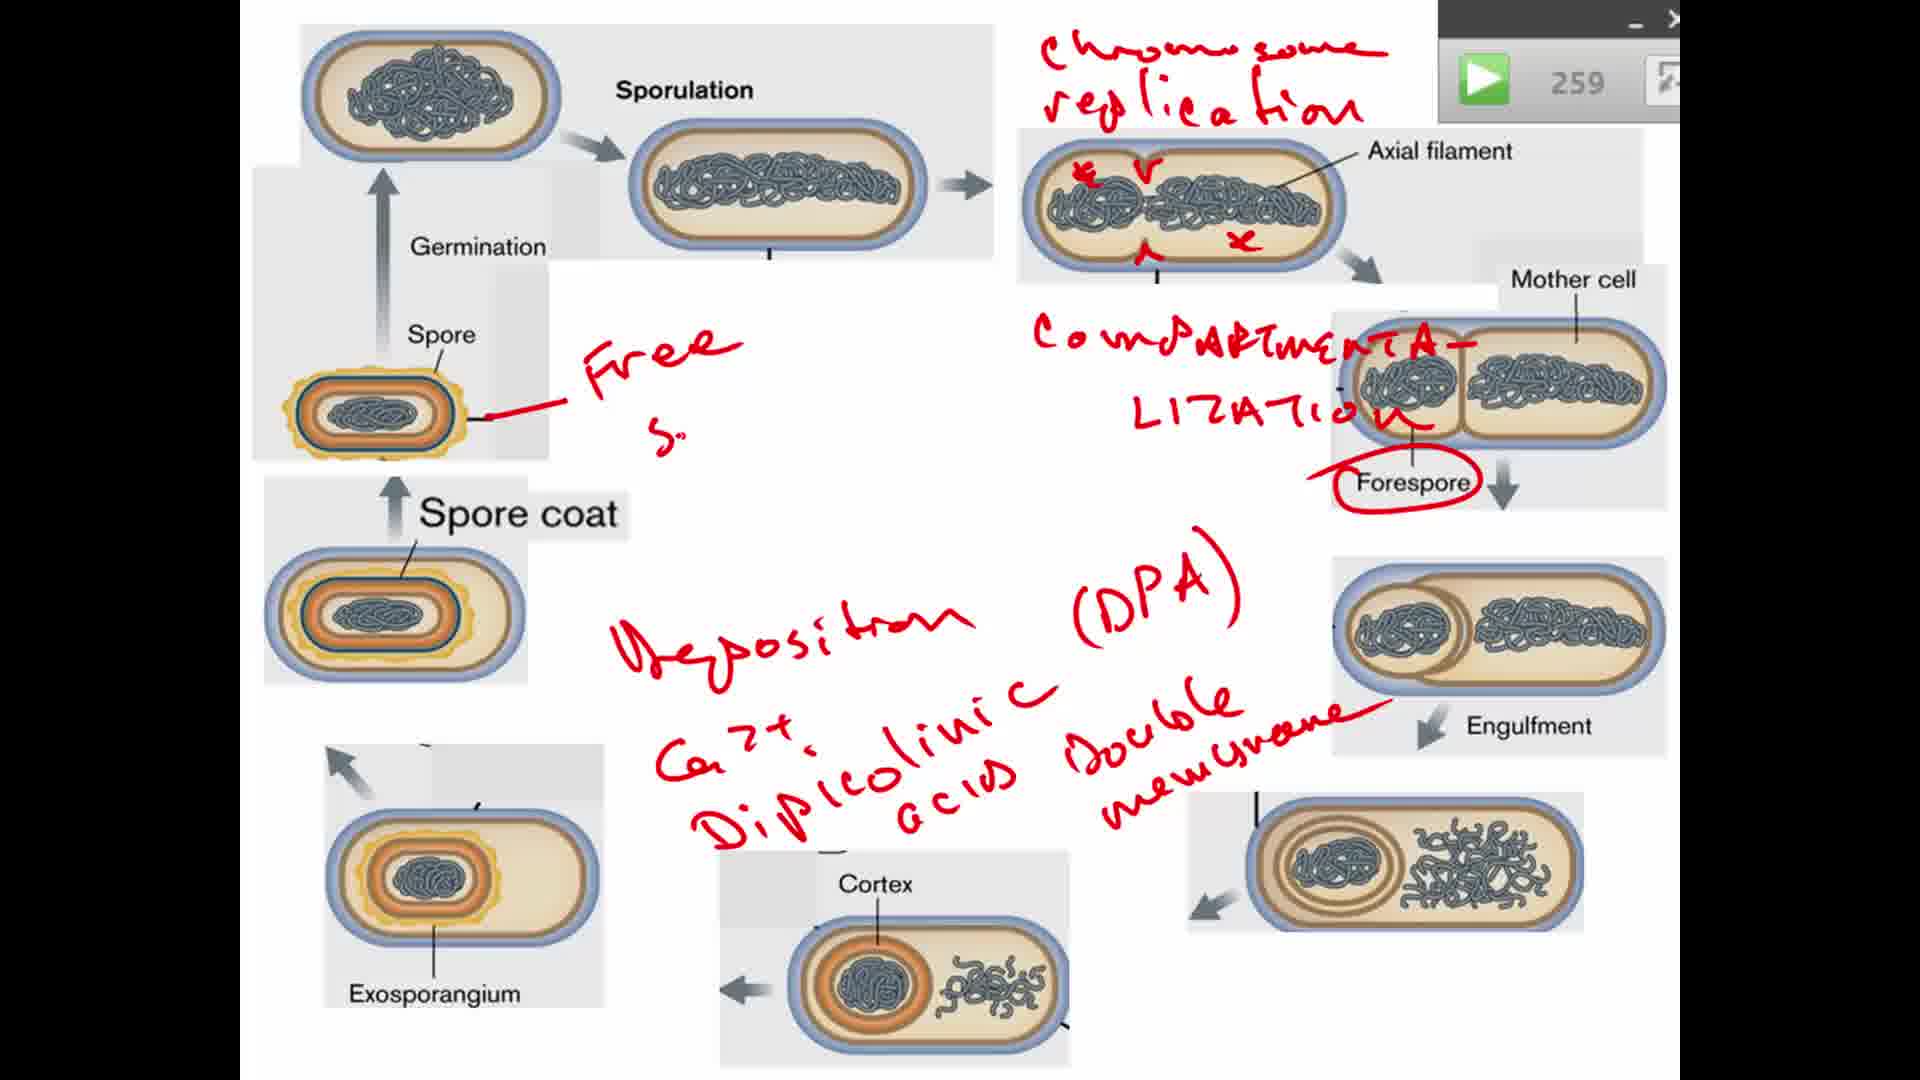 chromosome
replication
259
Sporulation
Axial filament
Germination
Mother cell
Spore
Free
S
COMPARTMENTA-
LIZATION
Forespore
Spore coat
Deposition
(DPA)
Ca2+,
Dipicolinic
acid
Double
membrane
Engulfment
Cortex
Exosporangium